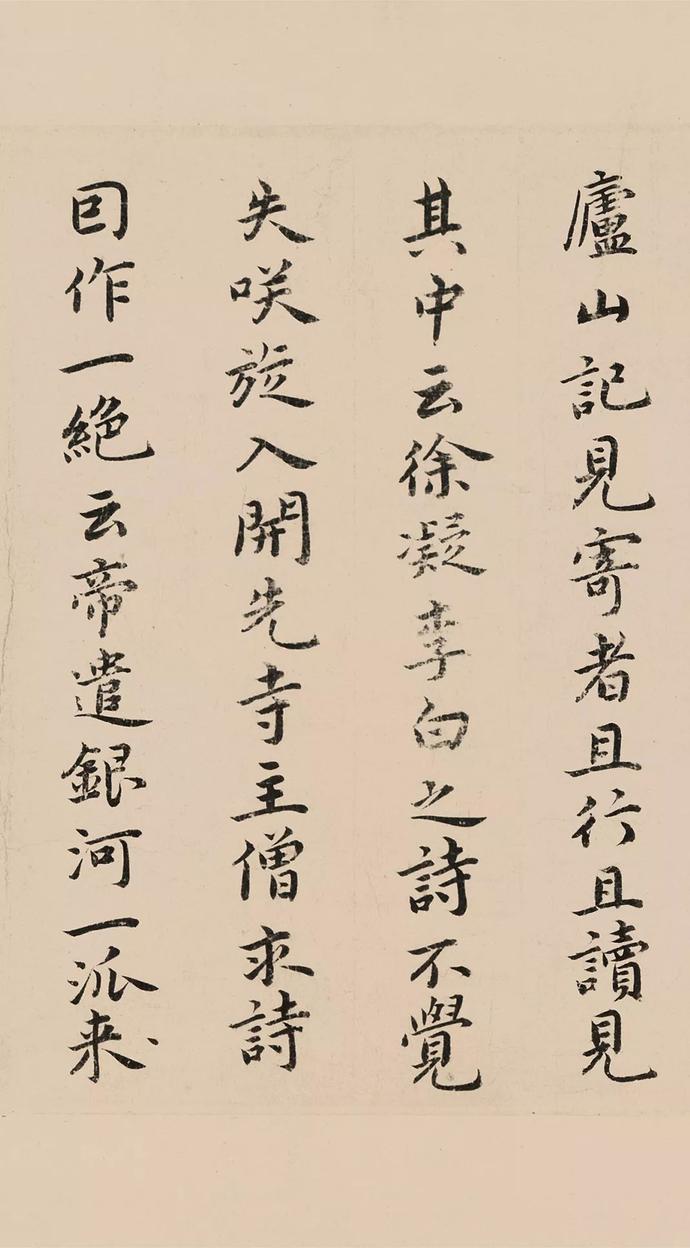 廬山記見寄者且行且讀見
其中云徐凝李白之詩不覺
失咲旋入開先寺主僧求詩
囙作一絶云帝遣銀河一派来